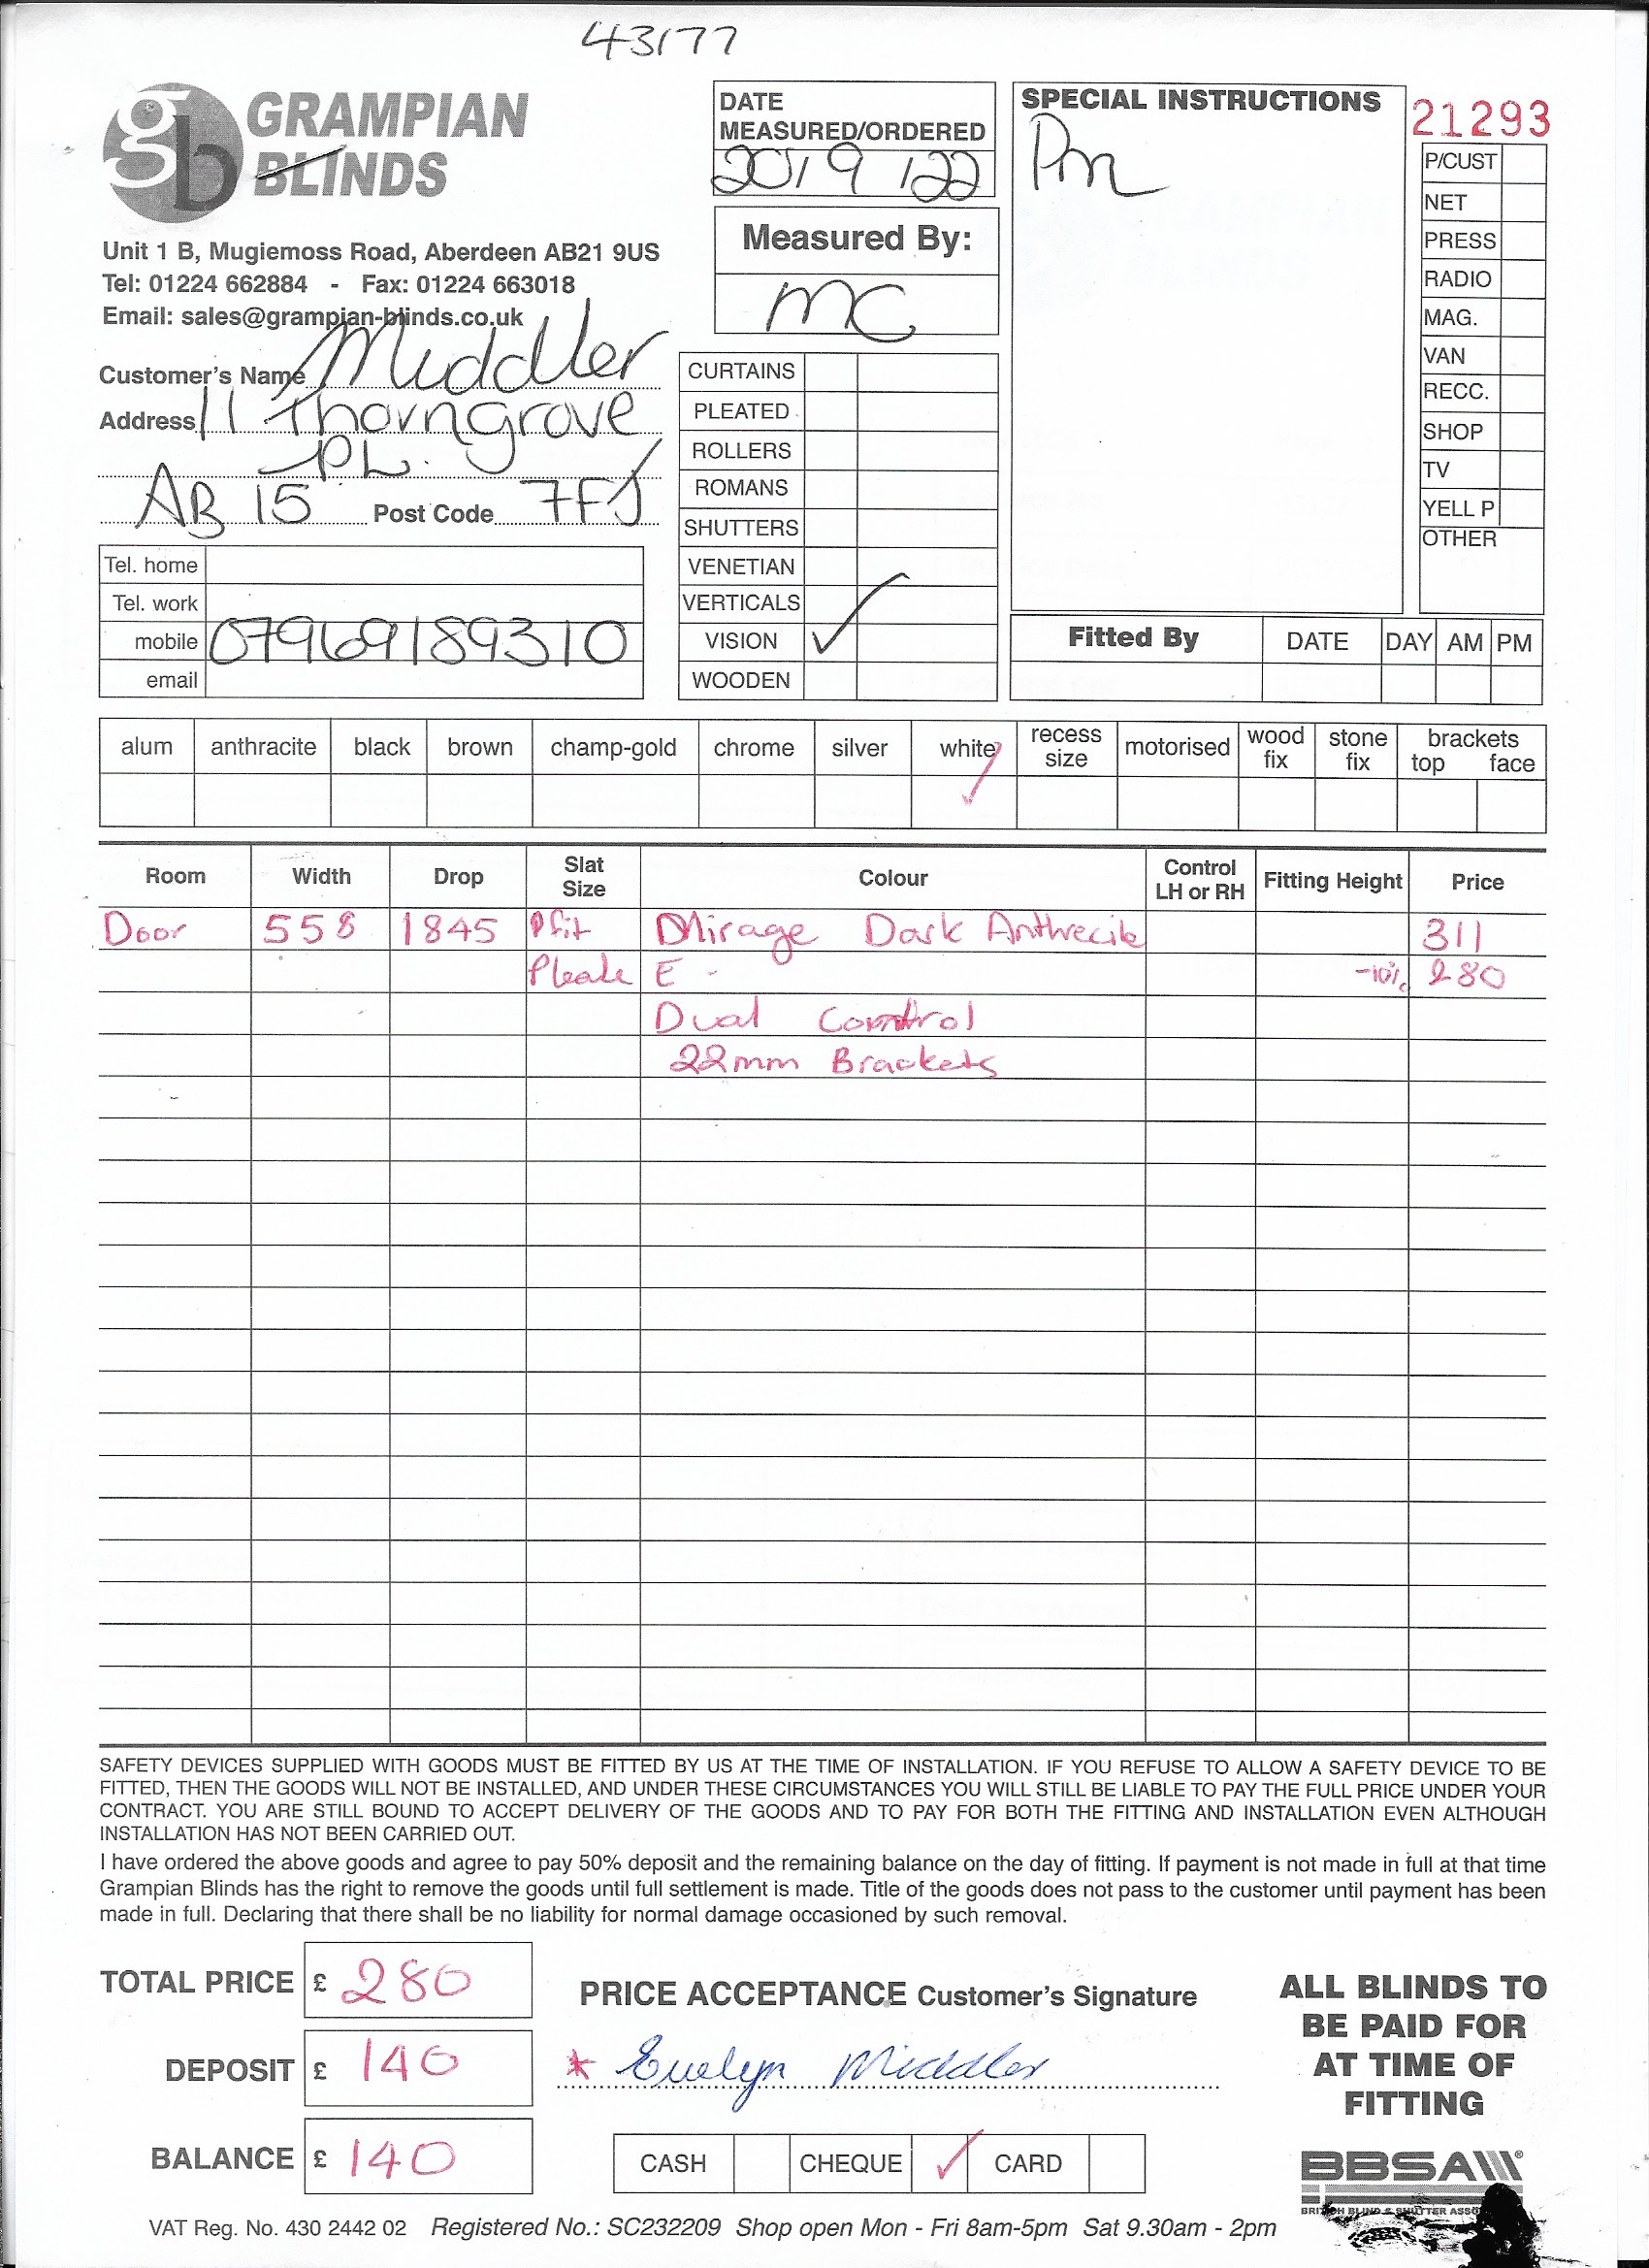 43177
GRAMPIAN
BLINDS
Unit 1 B, Mugiemoss Road, Aberdeen AB21 9US
Tel: 01224 662884 - Fax: 01224 663018
Email: sales@grampian-blinds.co.uk
Customer's Name Middler
Address 11 Thorngrove
PL.
AB 15 Post Code 7FJ
Tel. home
Tel. work
mobile 07969189310
email
DATE
MEASURED/ORDERED
20/9/22
Measured By:
MC
CURTAINS
PLEATED
ROLLERS
ROMANS
SHUTTERS
VENETIAN
VERTICALS
VISION ✓
WOODEN
SPECIAL INSTRUCTIONS
Pm
21293
P/CUST
NET
PRESS
RADIO
MAG.
VAN
RECC.
SHOP
TV
YELL P
OTHER
Fitted By DATE DAY AM PM
alum anthracite black brown champ-gold chrome silver white ✓ recess size motorised wood fix stone fix brackets top face
Room Width Drop Slat Size Colour Control LH or RH Fitting Height Price
Door 558 1845 Pfit Mirage Dark Anthrecite 311
Pleate E - -10% 280
Dual Control
22mm Brackets
SAFETY DEVICES SUPPLIED WITH GOODS MUST BE FITTED BY US AT THE TIME OF INSTALLATION. IF YOU REFUSE TO ALLOW A SAFETY DEVICE TO BE
FITTED, THEN THE GOODS WILL NOT BE INSTALLED, AND UNDER THESE CIRCUMSTANCES YOU WILL STILL BE LIABLE TO PAY THE FULL PRICE UNDER YOUR
CONTRACT. YOU ARE STILL BOUND TO ACCEPT DELIVERY OF THE GOODS AND TO PAY FOR BOTH THE FITTING AND INSTALLATION EVEN ALTHOUGH
INSTALLATION HAS NOT BEEN CARRIED OUT.
I have ordered the above goods and agree to pay 50% deposit and the remaining balance on the day of fitting. If payment is not made in full at that time
Grampian Blinds has the right to remove the goods until full settlement is made. Title of the goods does not pass to the customer until payment has been
made in full. Declaring that there shall be no liability for normal damage occasioned by such removal.
TOTAL PRICE £ 280
DEPOSIT £ 140
BALANCE £ 140
PRICE ACCEPTANCE Customer's Signature
* Evelyn Middler
CASH CHEQUE ✓ CARD
ALL BLINDS TO
BE PAID FOR
AT TIME OF
FITTING
BBSA
VAT Reg. No. 430 2442 02 Registered No.: SC232209 Shop open Mon - Fri 8am-5pm Sat 9.30am - 2pm